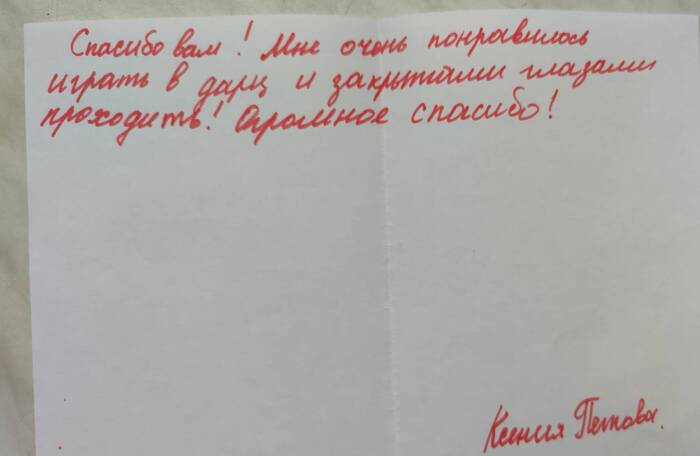 Спасибо вам! Мне очень понравилось
играть в дарц и закрытыми глазами
проходить! Огромное спасибо!
Ксения